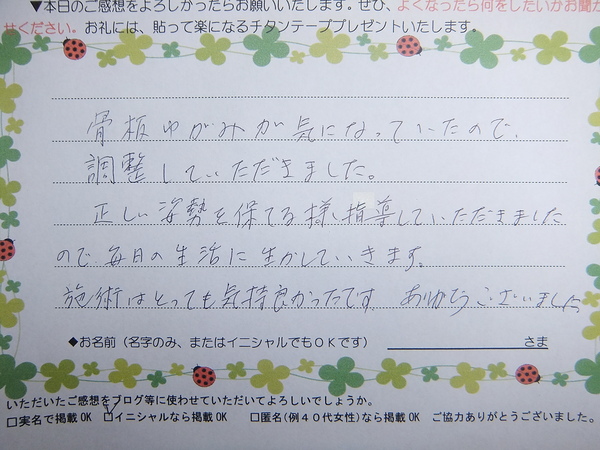 ▼本日のご感想をよろしかったらお願いいたします。ぜひ、よくなったら何をしたいかお聞か
せください。お礼には、貼って楽になるチタンテーププレゼントいたします。
骨板ゆがみが気になっていたので、
調整していただきました。
正しい姿勢を保てる様、指導していただきました
ので毎日の生活に生かしていきます。
施術はとっても気持良かったです。ありがとうございました
◆お名前（名字のみ、またはイニシャルでもOKです）　さま
いただいたご感想をブログ等に使わせていただいてよろしいでしょうか。
□実名で掲載OK　□イニシャルなら掲載OK　□匿名(例４０代女性)なら掲載OK　ご協力ありがとうございました。